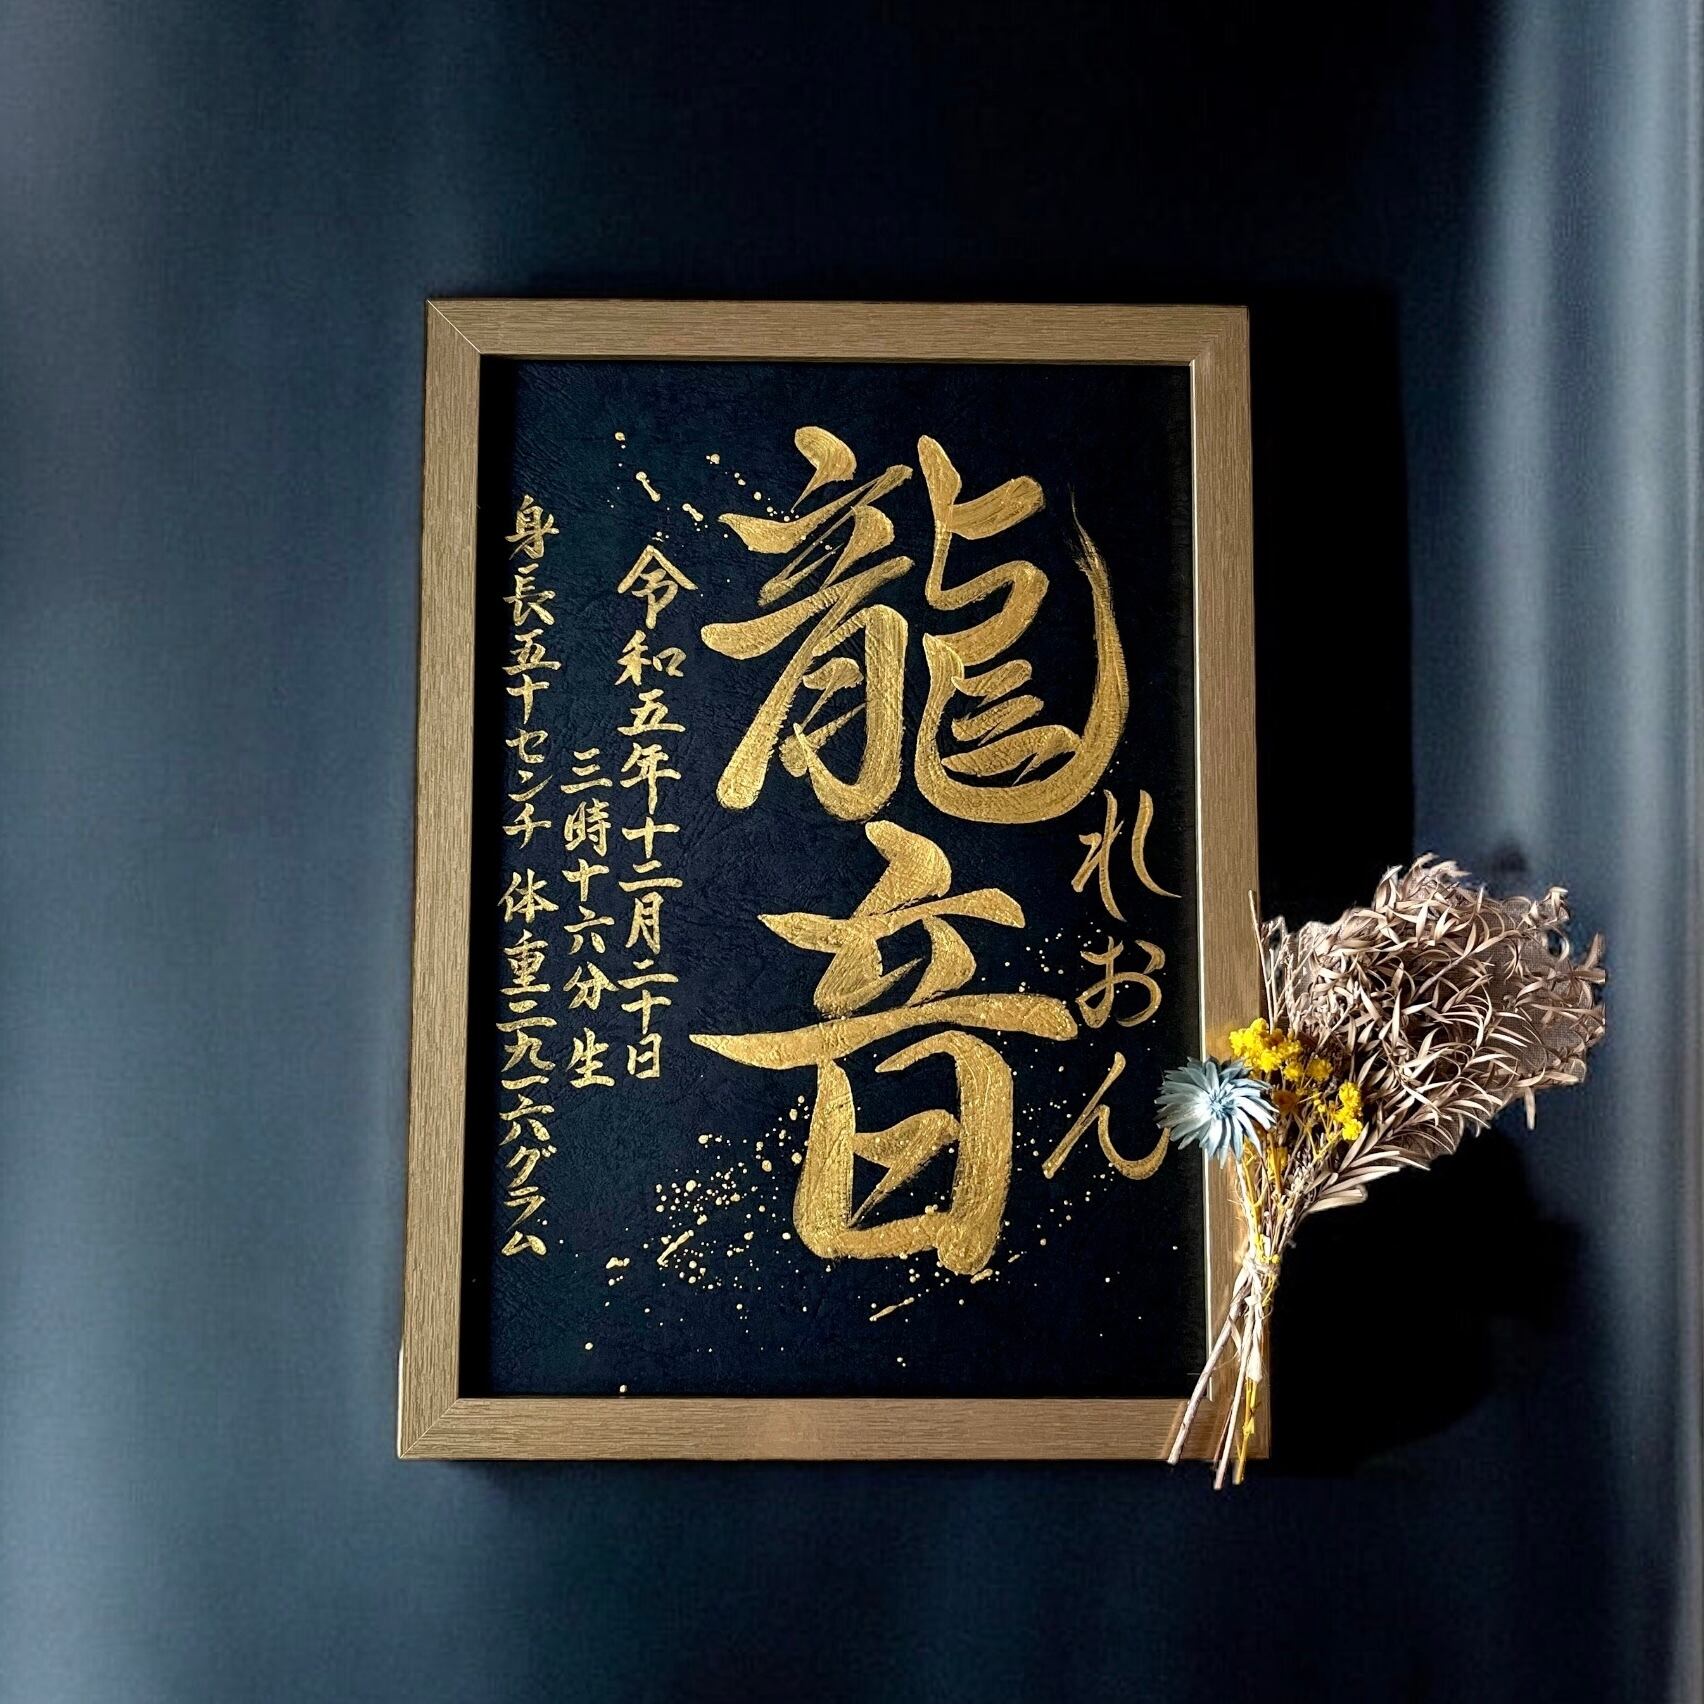 龍音
れおん
令和五年十二月二十日
三時十六分生
身長五十センチ 体重二九一六グラム